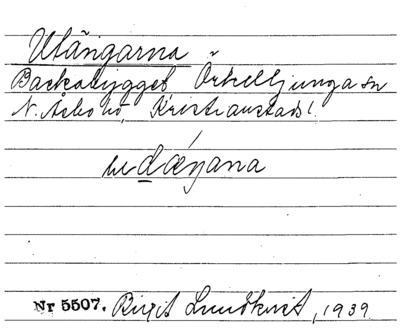 Utängarna
Backabygget Örkelljunga sn
N. Åsbo hd, Kristianstads l.
Nr 5507. Birgit Lundkvist, 1939